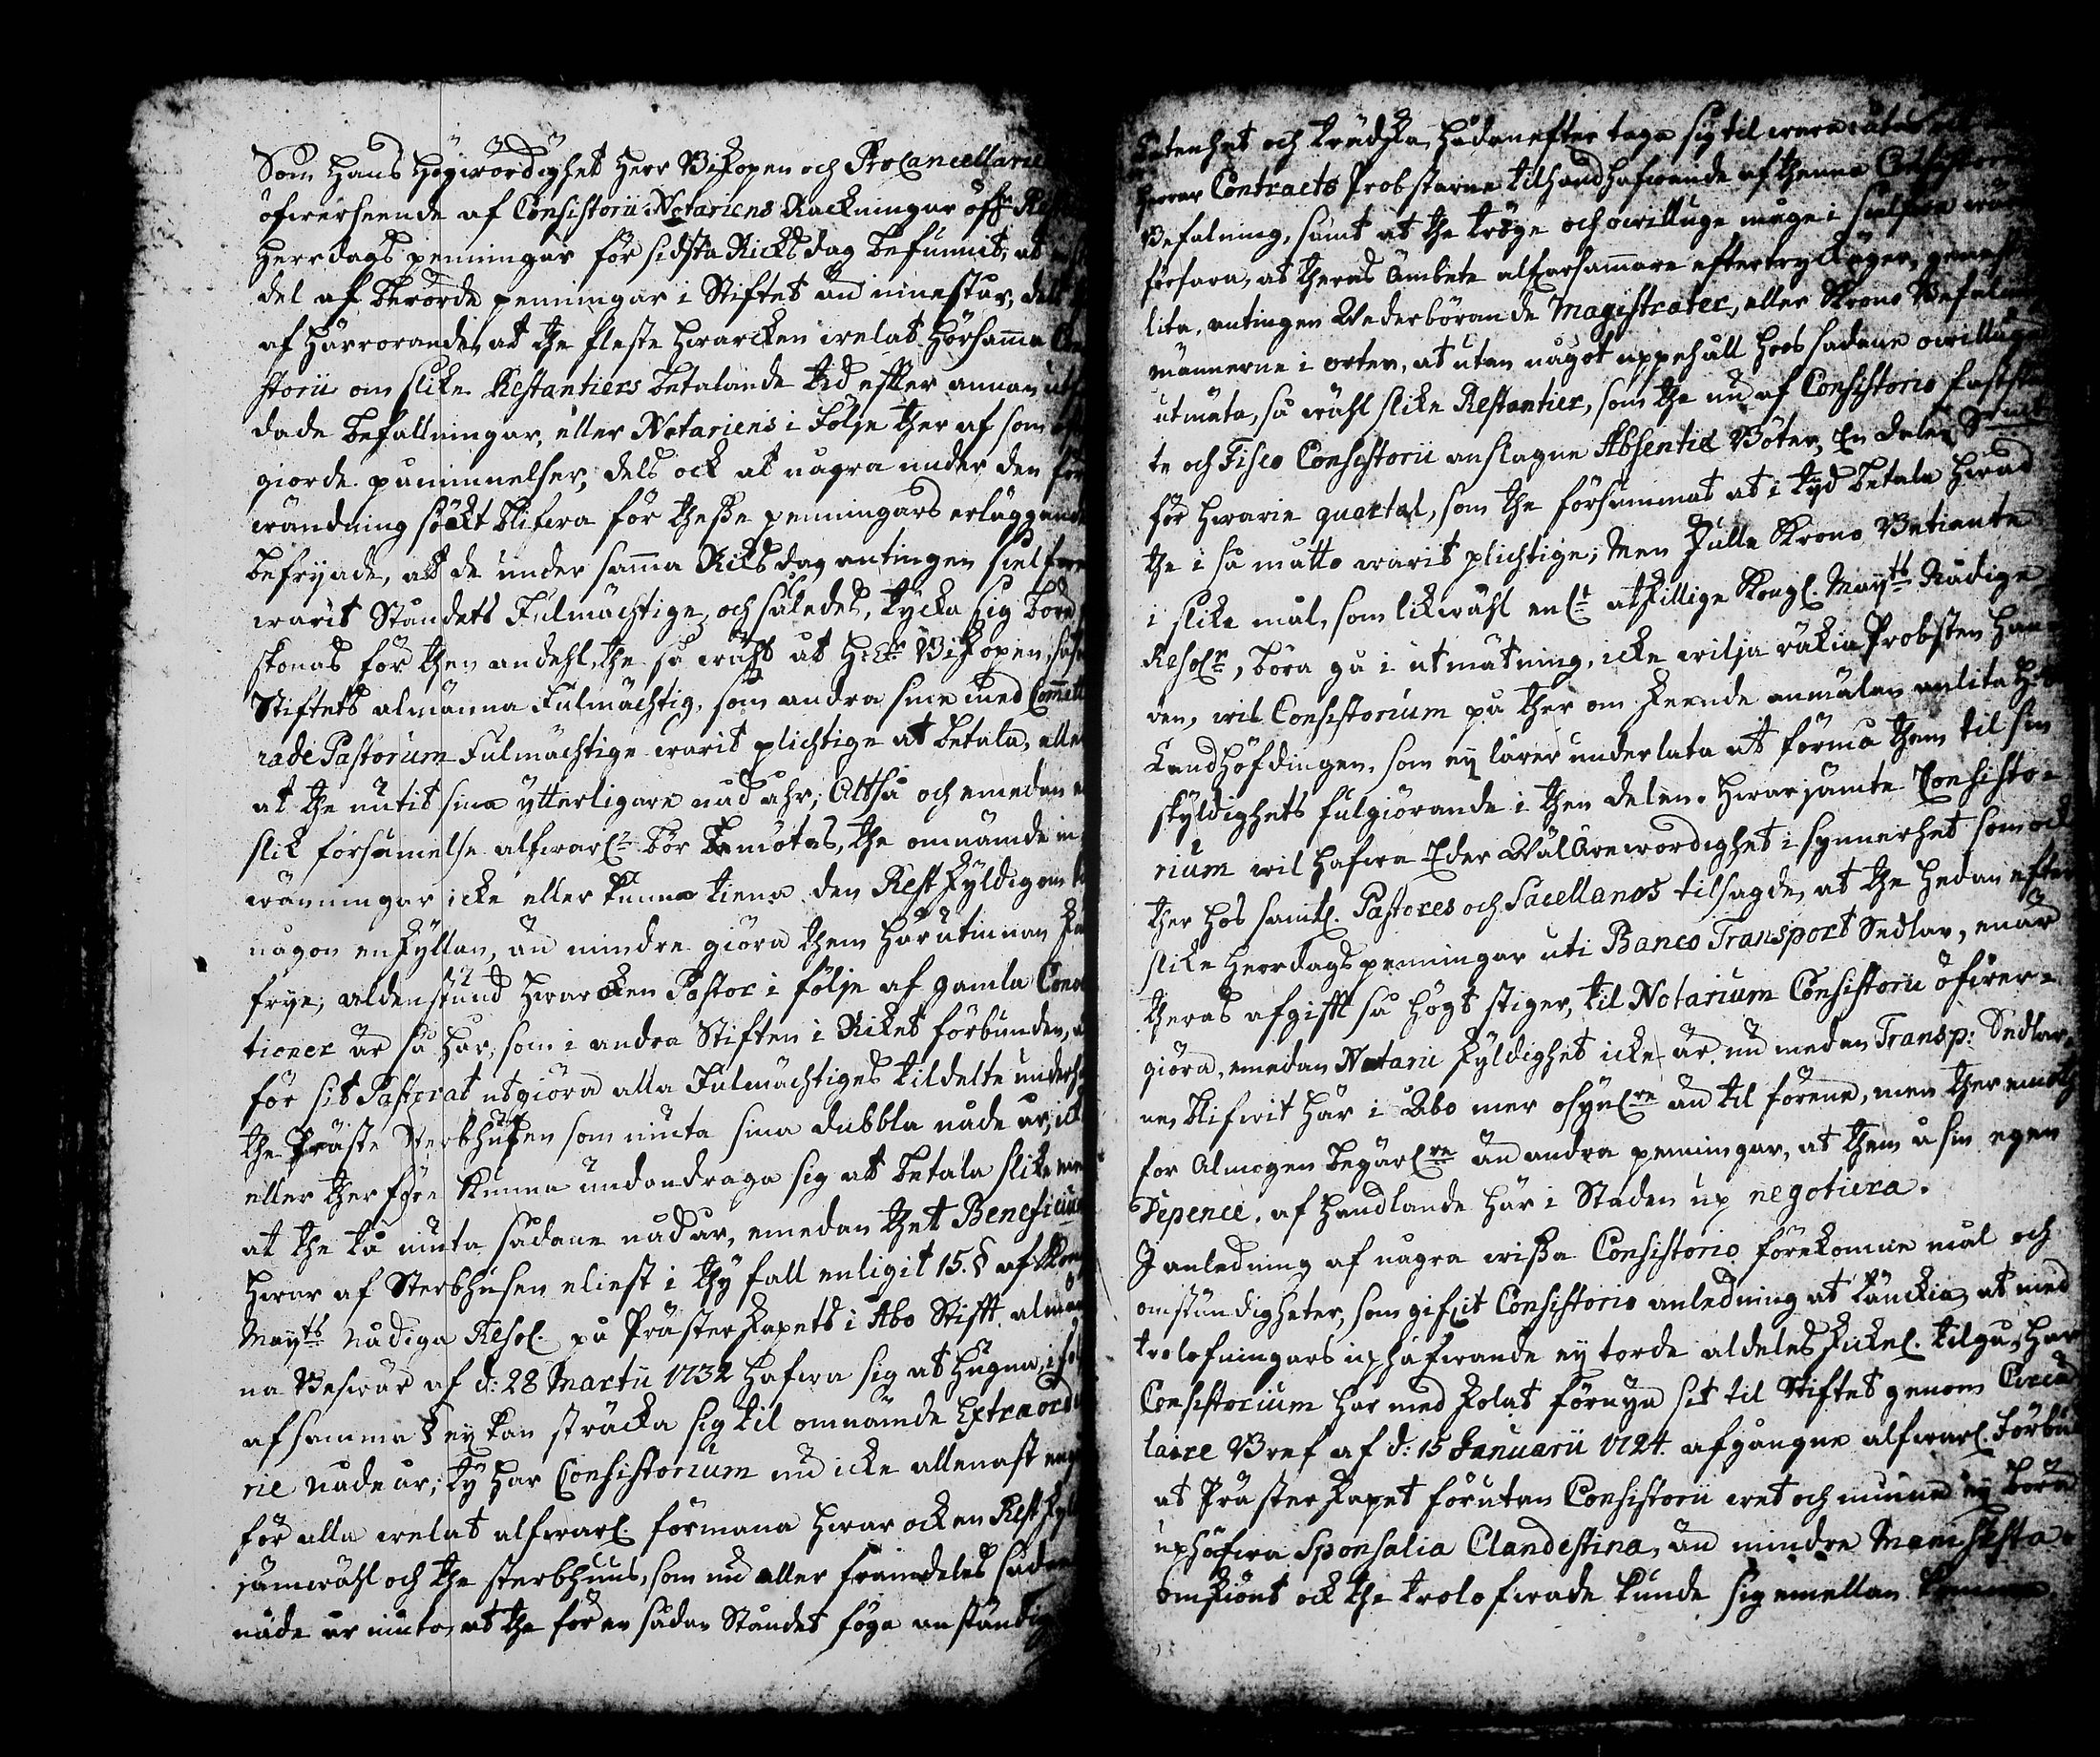 Som Hans Högwördighet Herr Biskopen och ProCancellarie
öfwerseende af Consistorii Notariens Räckningar öfr
Herrdags penningar för sidsta Ricksdag befunnit, at
del af berörde penningar i Stiftet än innestår, dels
af härrörande, at the fleste hwarcken welat hörsamma
storii om slike Restantiers betalande tid efter annan
dade befallningar, eller Notariens i Följe ther af som
giorde påminnelser, dels ock at någre under den för
wändning sökt blifwa för thesse penningars erläggande
befryade, at de under samma Riksdag antingen sielfwe
warit Ståndets Fulmächtige och således, tycka sig böra
skonas för then andehl, the så wähl åt H:r Biskopen, så
Stiftets almänna Fulmächtig, som andra sine med
rade Pastorum Fulmächtige warit plichtige at betala, eller
at the nutit sina ytterligare nåd åhr; Altså och emedan
slik försumelse alfwarl:n bör bemötas, the omnämde in
wänningar icke eller kunna tiena den Restskyldigom
någon enskyllan, än mindre giöra them härutinnan
frye, aldenstund hwarcken Pastor i följe af gamla
tioner är så här, som i andra Stiften i Riket förbunden,
för sit Pastorat utgiöra alla Fulmächtiges tildelte underh
the Präste Sterbhusen som niuta sina dubbla nåde år, ick
eller therföre kunna undandraga sig at betala slike
at the tå niuta sådane nåd år, emedan thet Beneficium
hwar af Sterbhusen eliest i thy fall enligit 15. § af
May:ts Nådiga Resol. på Prästerskapets i Åbo Stifft almän
na Beswär af d: 28 Martii 1732 hafwa sig at hugna, i
af samma § ey kan sträcka sig til omnämde Extraord
rie Nåde år; Ty har Consistorium nu icke allenast
för alla welat alfwarl. förmana hwar ocken Restskyl
såwähl och the sterbhuus, som nu eller framdeles sådane
nåde år niuta, at the för en sådan Ståndet föga anständig
och tredska, hädanefter taga sig til wara utan
Herrar Contracts Probstarne tilhandhafwande af thenna Consistorii
Befalning, samt at the tröge och owillige måge i sielfwa
förfara, at theras Ämbete alfarsammare eftertryck äger,
lita, antingen Wederbörande Magistrater, eller Krono Befalning
männerne i orten, at utan något uppehåll hoos sådane owillige
utmäta, så wähl slike Restantier, som the nu af Consistorio fastst
te och Fisco Consistorii anslagne Absentiæ Böter, En daler S:mt
för hwarie quartal, som the försummat at i tyd betala hwad
the i så måtto warit plichtige; Men skulle Krono Betiente
i slike mål, som likwähl enl:t åtskillige Kongl. May:ts Nådige
Resol:r, böra gå i utmätning, icke wilja räkia Probsten han-
den, wil Consistorium på ther om skeende anmälan anlita H
Landshöfdingen, som ey lärer underlåta at förmå them til sin
skyldighets fulgiörande i then delen. Hwarjämte Consisto-
rium wil hafwa Eder WälÄrewördighet i synnerhet som ock
ther hos samtl. Pastores och Sacellanos tilsagde, at the hedanefter
slike herrdagspenningar uti Banco Transport Sedlar, enär
theras afgifft så högt stiger, til Notarium Consistorii öfwer-
giöra, emedan Notarii skyldighet icke är, nu medan Transp: Sedlar
ne blifwit här i Åbo mer osynl:re än til förene, men ther emoth
för Almogen begärl:re än andra penningar, at them å sin egen
Depence, af handlande här i Staden up negotiera.
I anledning af några wissa Consistorio förekomne mål och
omständigheter, som gifwit Consistorio anledning at täncka, at med
trolofningars uphäfwande ey torde aldeles skickel. tilgå, har
Consistorium här med skolat förnya sit til Stiftet genom Circu
laire Bref af d: 15 Januarii 1724. afgångne alfwarl. Förbud
at Prästerskapet förutan Consistorii wet och minne ey böra
uphäfwa Sponsalia Clandestina, än mindre Manifesta
omskiönt ock the trolofwade kunde sig emellan komma